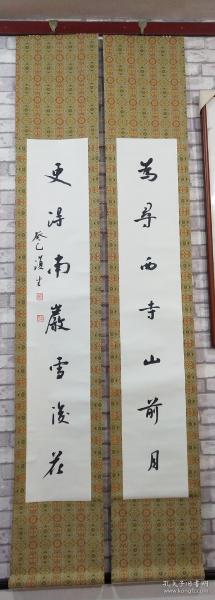 為尋西寺山前月
更得南巖雪後花
癸巳漢生
孔夫子旧书网